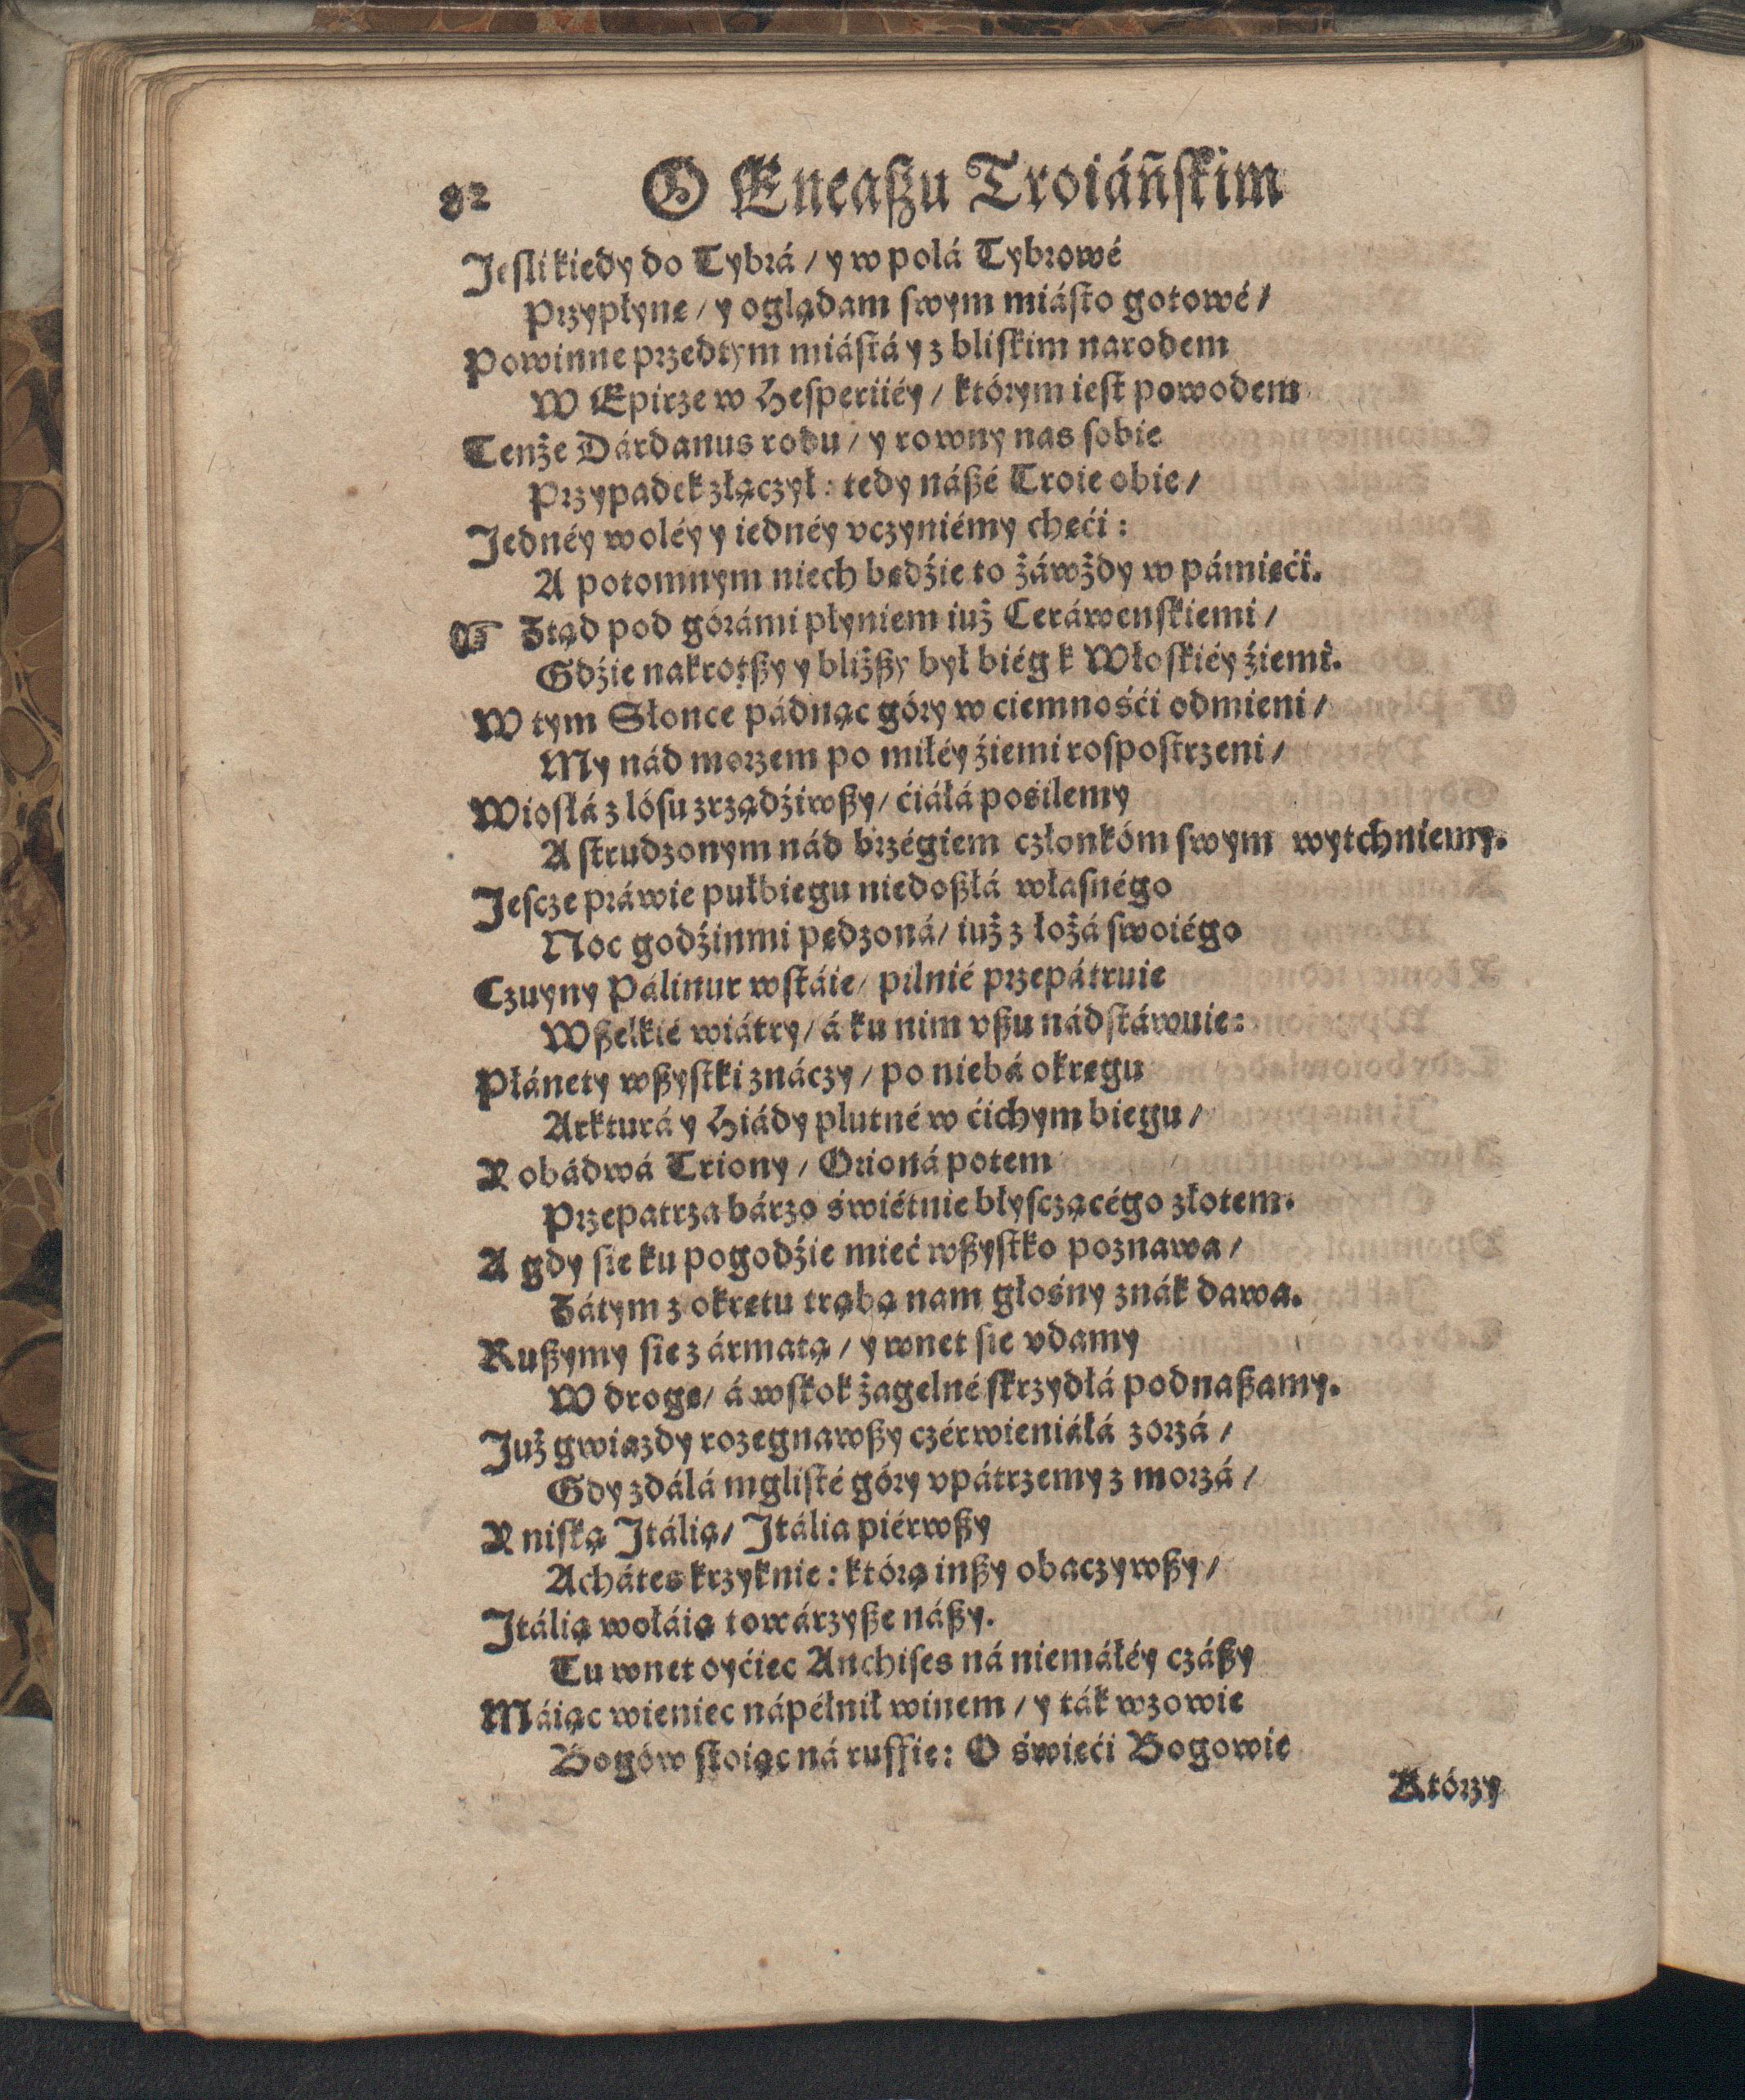 82 O Eneaßu Troiáńſkim
Jeſli kiedy do Tybrá / y w polá Tybrowé
Przypłynę / y oglądam ſwym miáſto gotowé /
Powinne przedtym miáſtá y z bliſkim narodem
W Epirze w Heſperiiéy / którym ieſt powodem
Tenże Dárdanus rodu / y rowny nas ſobie
Przypadek złączył : tedy náßé Troie obie /
Jednéy woléy y iednéy vczyniémy chęći :
A potomnym niech będźie to żáwżdy w pámięći.
☞ Ztąd pod górámi płyniem iuż Ceráwenſkiemi /
Gdźie nakrotßy y bliżßy był biég k Włoſkiéy źiemi.
W tym Słonce pádnąc góry w ciemnośći odmieni /
My nád morzem po miłéy źiemi roſpoſtrzeni /
Wioſłá z lóſu zrządźiwßy / ćiáłá pośilemy
A ſtrudzonym nád brzégiem członkóm ſwym wytchniemy.
Jeſcze práwie pułbiegu niedoßłá właſnégo
Noc godźinmi pędzoná / iuż z łożá ſwoiégo
Czuyny Pálinur wſtáie / pilnié przepátruie
Wßelkié wiátry / á ku nim vßu nádſtáwuie :
Płánety wßyſtki znáczy / po niebá okręgu
Arkturá y Hiády plutné w ćichym biegu /
Y obádwá Triony / Orioná potem
Przepatrza bárzo świétnie błyſczącégo złotem.
A gdy ſie ku pogodźie mieć wßyſtko poznawa /
Zátym z okrętu trąbą nam głośny znák dawa.
Rußymy ſie z ármatą / y wnet ſie vdamy
W drogę / á wſkok żagelné ſkrzydłá podnaßamy.
Już gwiazdy rozegnawßy czérwieniáłá zorzá /
Gdy zdálá mgliſté góry vpátrzemy z morzá /
Y niſką Jtálią / Jtália piérwßy
Achátes krzyknie : którą inßy obaczywßy /
Jtálią wołáią towárzyße náßy.
Tu wnet oyćiec Anchiſes ná niemáłéy czáßy
Máiąc wieniec nápéłnił winem / y ták wzowie
Bogów ſtoiąc ná ruffie : O święći Bogowie
Którzy